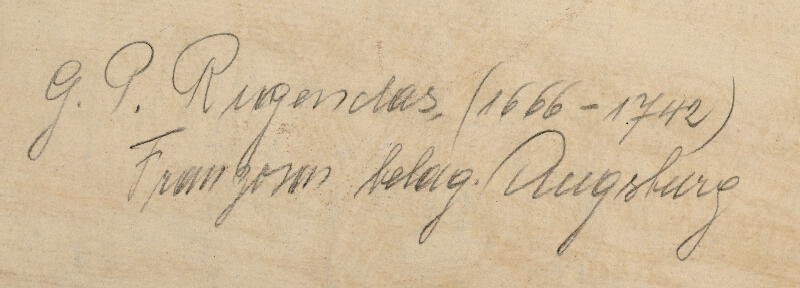 G. P. Rugendas, (1666-1742)
Franzosen belag. Augsburg